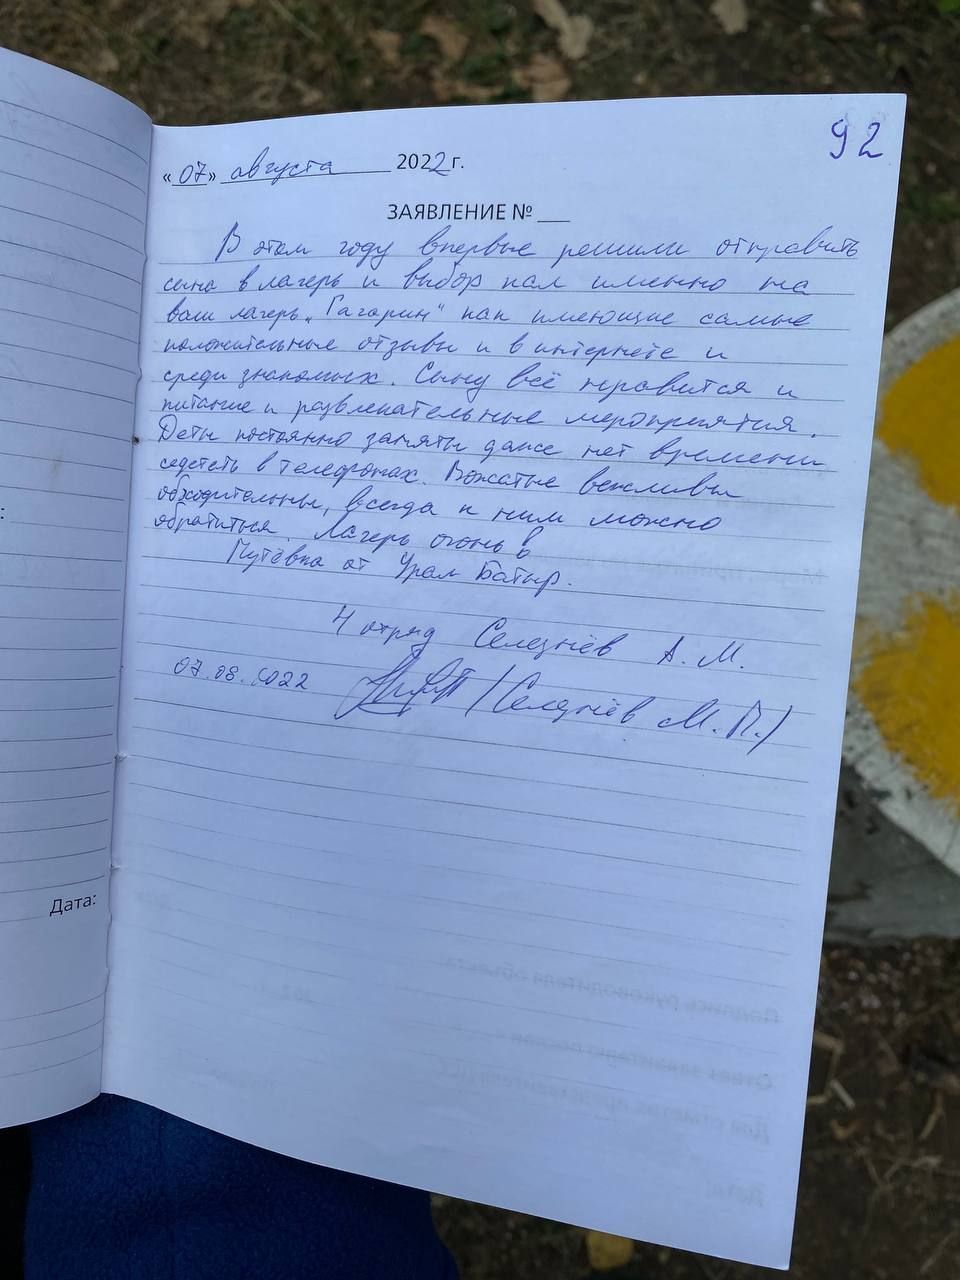 92
«07» августа 2022 г.
ЗАЯВЛЕНИЕ № ___
В этом году впервые решили отправить
сына в лагерь и выбор пал именно на
ваш лагерь „Гагарин" как имеющие самые
положительные отзывы и в интернете и
среди знакомых. Сыну всё нравится и
питание и развлекательные мероприятия.
Деты постоянно заняты даже нет времени
седететь в телефонах. Вожатые вежливы
обходительны, всегда к ним можно
обратиться. Лагерь огонь
Путёвка от Урал Батыр.
4 отряд Селезнёв А. М.
07.08.2022 /Селезнёв М. П./
Дата: